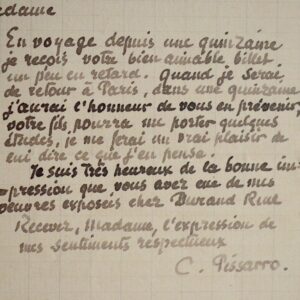 Madame
En voyage depuis une quinzaine
je reçois votre bien aimable billet
un peu en retard. Quand je serai
de retour à Paris, dans une quinzaine
j'aurai l'honneur de vous en prévenir,
votre fils pourra me porter quelques
études, je me ferai un vrai plaisir de
lui dire ce que j'en pense.
Je suis très heureux de la bonne im-
-pression que vous avez eue de mes
oeuvres exposées chez Durand Ruel
Recevez, Madame, l'expression de
mes sentiments respectueux
C. Pissarro.